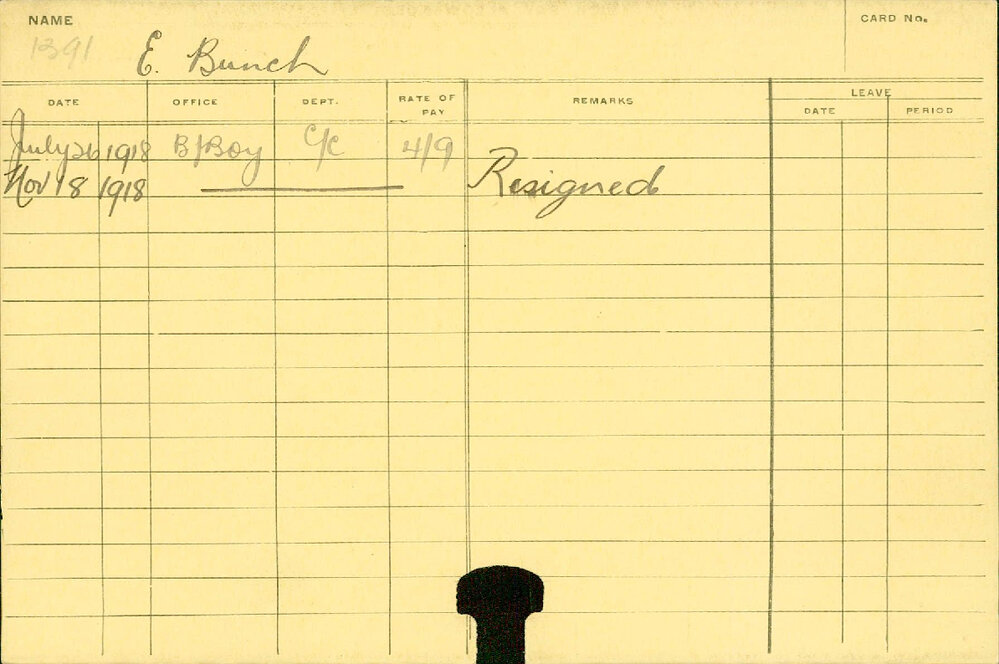 NAME
CARD No.
1391
E. Bunch
DATE OFFICE DEPT. RATE OF PAY REMARKS LEAVE
DATE PERIOD
July 26 1918 B/Boy C/C 4/9
Nov 18 1918 Resigned